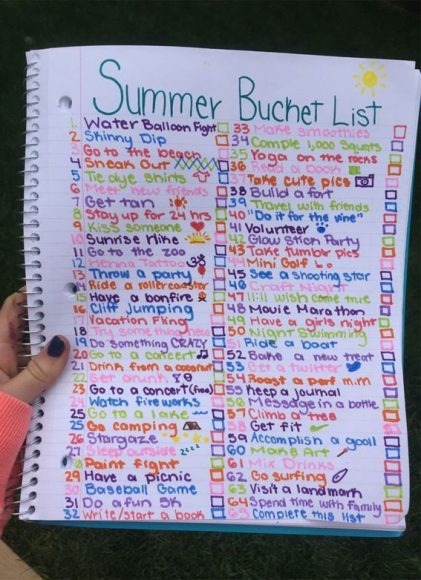 Summer Bucket List
1. Water Balloon Fight
2 Skinny Dip
3 Go to the beach
4 Sneak Out
5 Tie dye shirts
6 Meet new friends
7 Get tan
8 Stay up for 24 hrs
9 Kiss someone
10 Sunrise Hike
11 Go to the zoo
12 Henna Tattoo
13 Throw a party
14 Ride a rollercoaster
15 Have a bonfire
16 Cliff Jumping
17 Vacation Fling
18 Try something new
19 Do something CRAZY
20 Go to a concert
21 Drink from a coconut
22 Get drunk
23 Go to a concert (free)
24 Watch fireworks
25 Go to a lake
25 Go camping
26 Stargaze
27 Sleep outside zzzz
28 Paint fight
29 Have a picnic
30 Baseball Game
31 Do a fun 5K
32 Write/start a book
33 Make smoothies
34 Comple 1,000 Squats
35 Yoga on the rocks
36 Read a book
37 Take cute pics
38 Build a fort
39 Travel with friends
40 "Do it for the vine"
41 Volunteer
42 Glow Stick Party
43 Take tumblr pics
44 Mini Golf
45 See a shooting star
46 Craft Night
47 11:11 wish come true
48 Movie Marathon
49 Have a girls night
50 Night Swimming
51 Ride a boat
52 Bake a new treat
53 Get a twitter
54 Roast a perf m.m
55 Keep a journal
56 Message in a bottle
57 Climb a tree
58 Get fit
59 Accomplish a goal
60 Make Art
61 Mix Drinks
62 Go surfing
63 Visit a landmark
64 Spend time with family
65 Complete this list